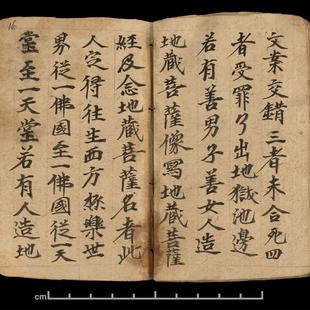 文案交錯三者未合死四
者受罪了出地獄池邊
若有善男子善女人造
地藏菩薩像寫地藏菩薩
經及念地藏菩薩名者此
人定得往生西方極樂世
界從一佛國至一佛國從一天
堂至一天堂若有人造地
16
cm